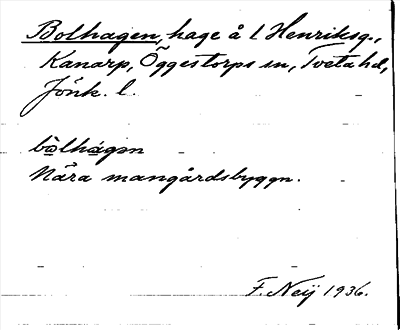 Bolhagen, hage å 1 Henriksg.,
Kanarp, Öggestorps sn, Tveta hd,
Jönk. l.
bòlhágən
Nära mangårdsbyggn.
F. Neij 1936.